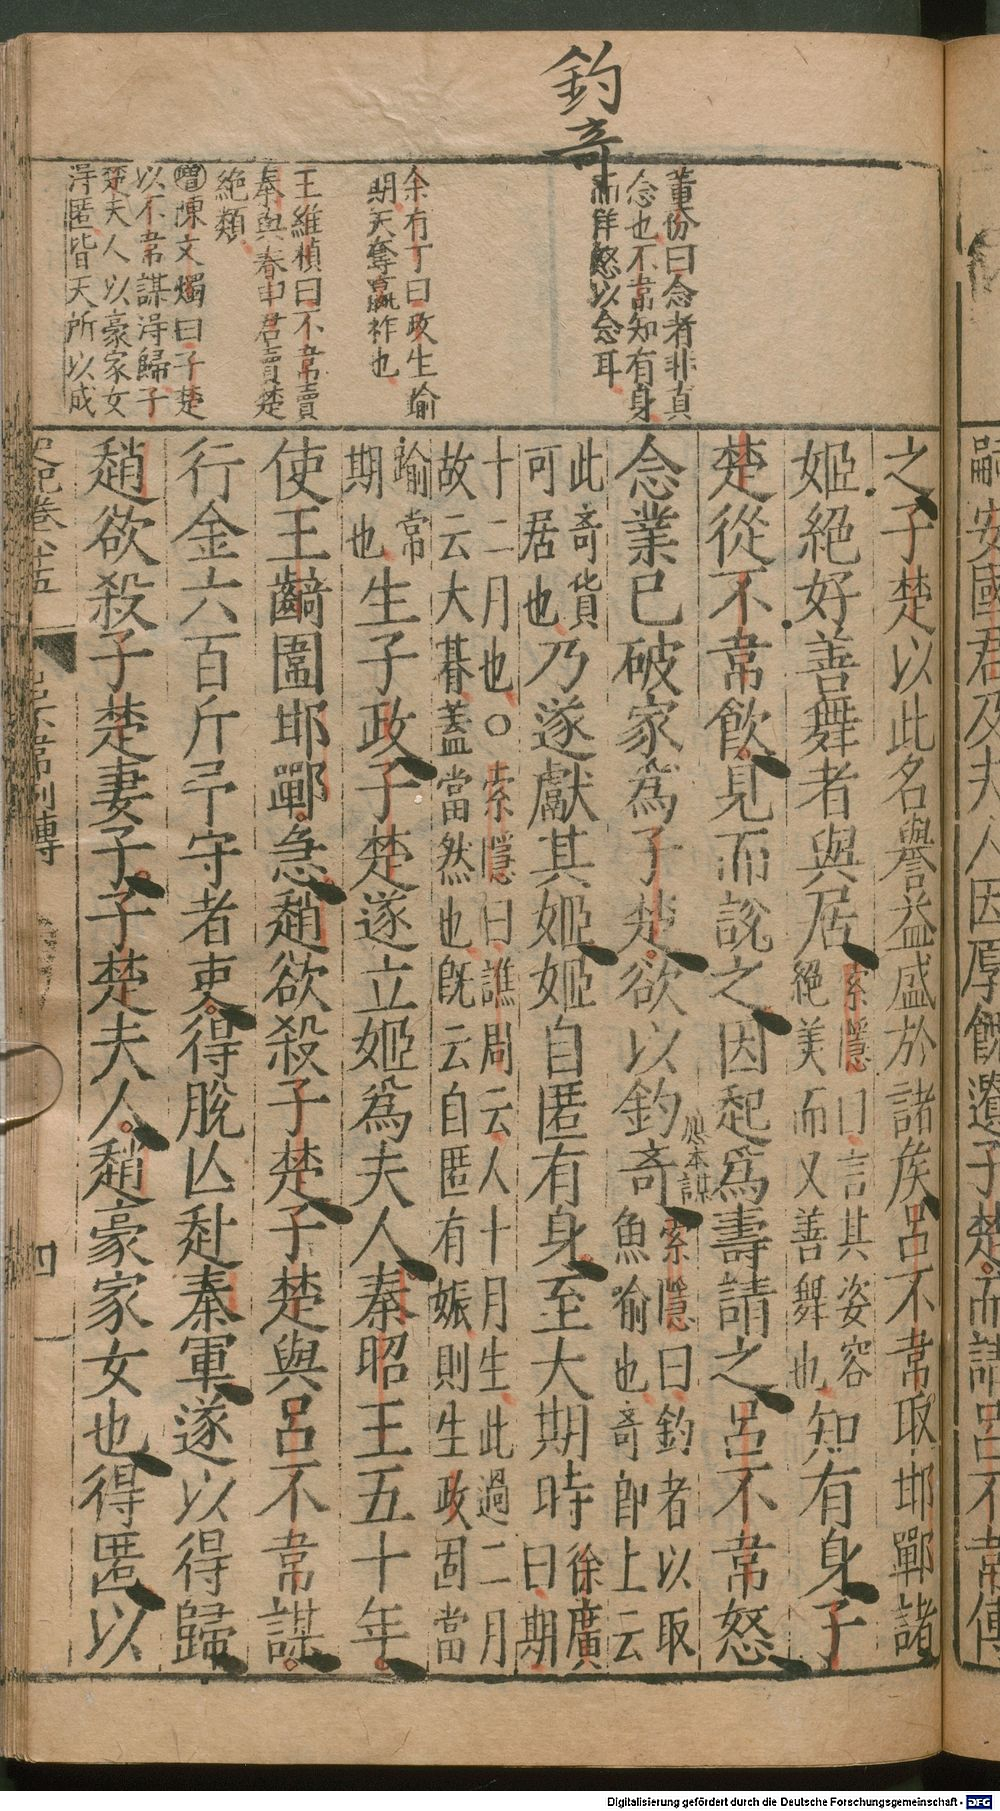 釣奇
董份曰念者非真
念也不韋知有身
而佯怒以念耳
余有丁曰政生踰
期天奪嬴祚也
王維楨曰不韋賣
秦與春申君賣楚
絕類
增陳文燭曰子楚
以不韋謀淂歸子
楚夫人以豪家女
淂匿皆天所以成
之子楚以此名譽益盛於諸矦呂不韋取邯鄲諸
姬絕好善舞者與居
索隱曰言其姿容
絕美而又善舞也
知有身子
楚從不韋飲見而說之因起爲壽請之呂不韋怒
念業已破家爲子楚欲以釣奇
索隱曰釣者以取
魚喻也奇卽上云
應本謀
此奇貨
可居也
乃遂獻其姬姬自匿有身至大期時
徐廣
曰期
十二月也○索隱曰譙周云人十月生此過二月
故云大朞蓋當然也旣云自匿有娠則生政固當
踰常
期也
生子政子楚遂立姬爲夫人秦昭王五十年
使王齮圍邯鄲急趙欲殺子楚子楚與呂不韋謀
行金六百斤予守者吏得脫亾赴秦軍遂以得歸
趙欲殺子楚妻子子楚夫人趙豪家女也得匿以
史記卷八十五 呂不韋列傳 四
嗣安國君及夫人因厚餽遺子楚而請呂不韋傅
Digitalisierung gefördert durch die Deutsche Forschungsgemeinschaft - DFG